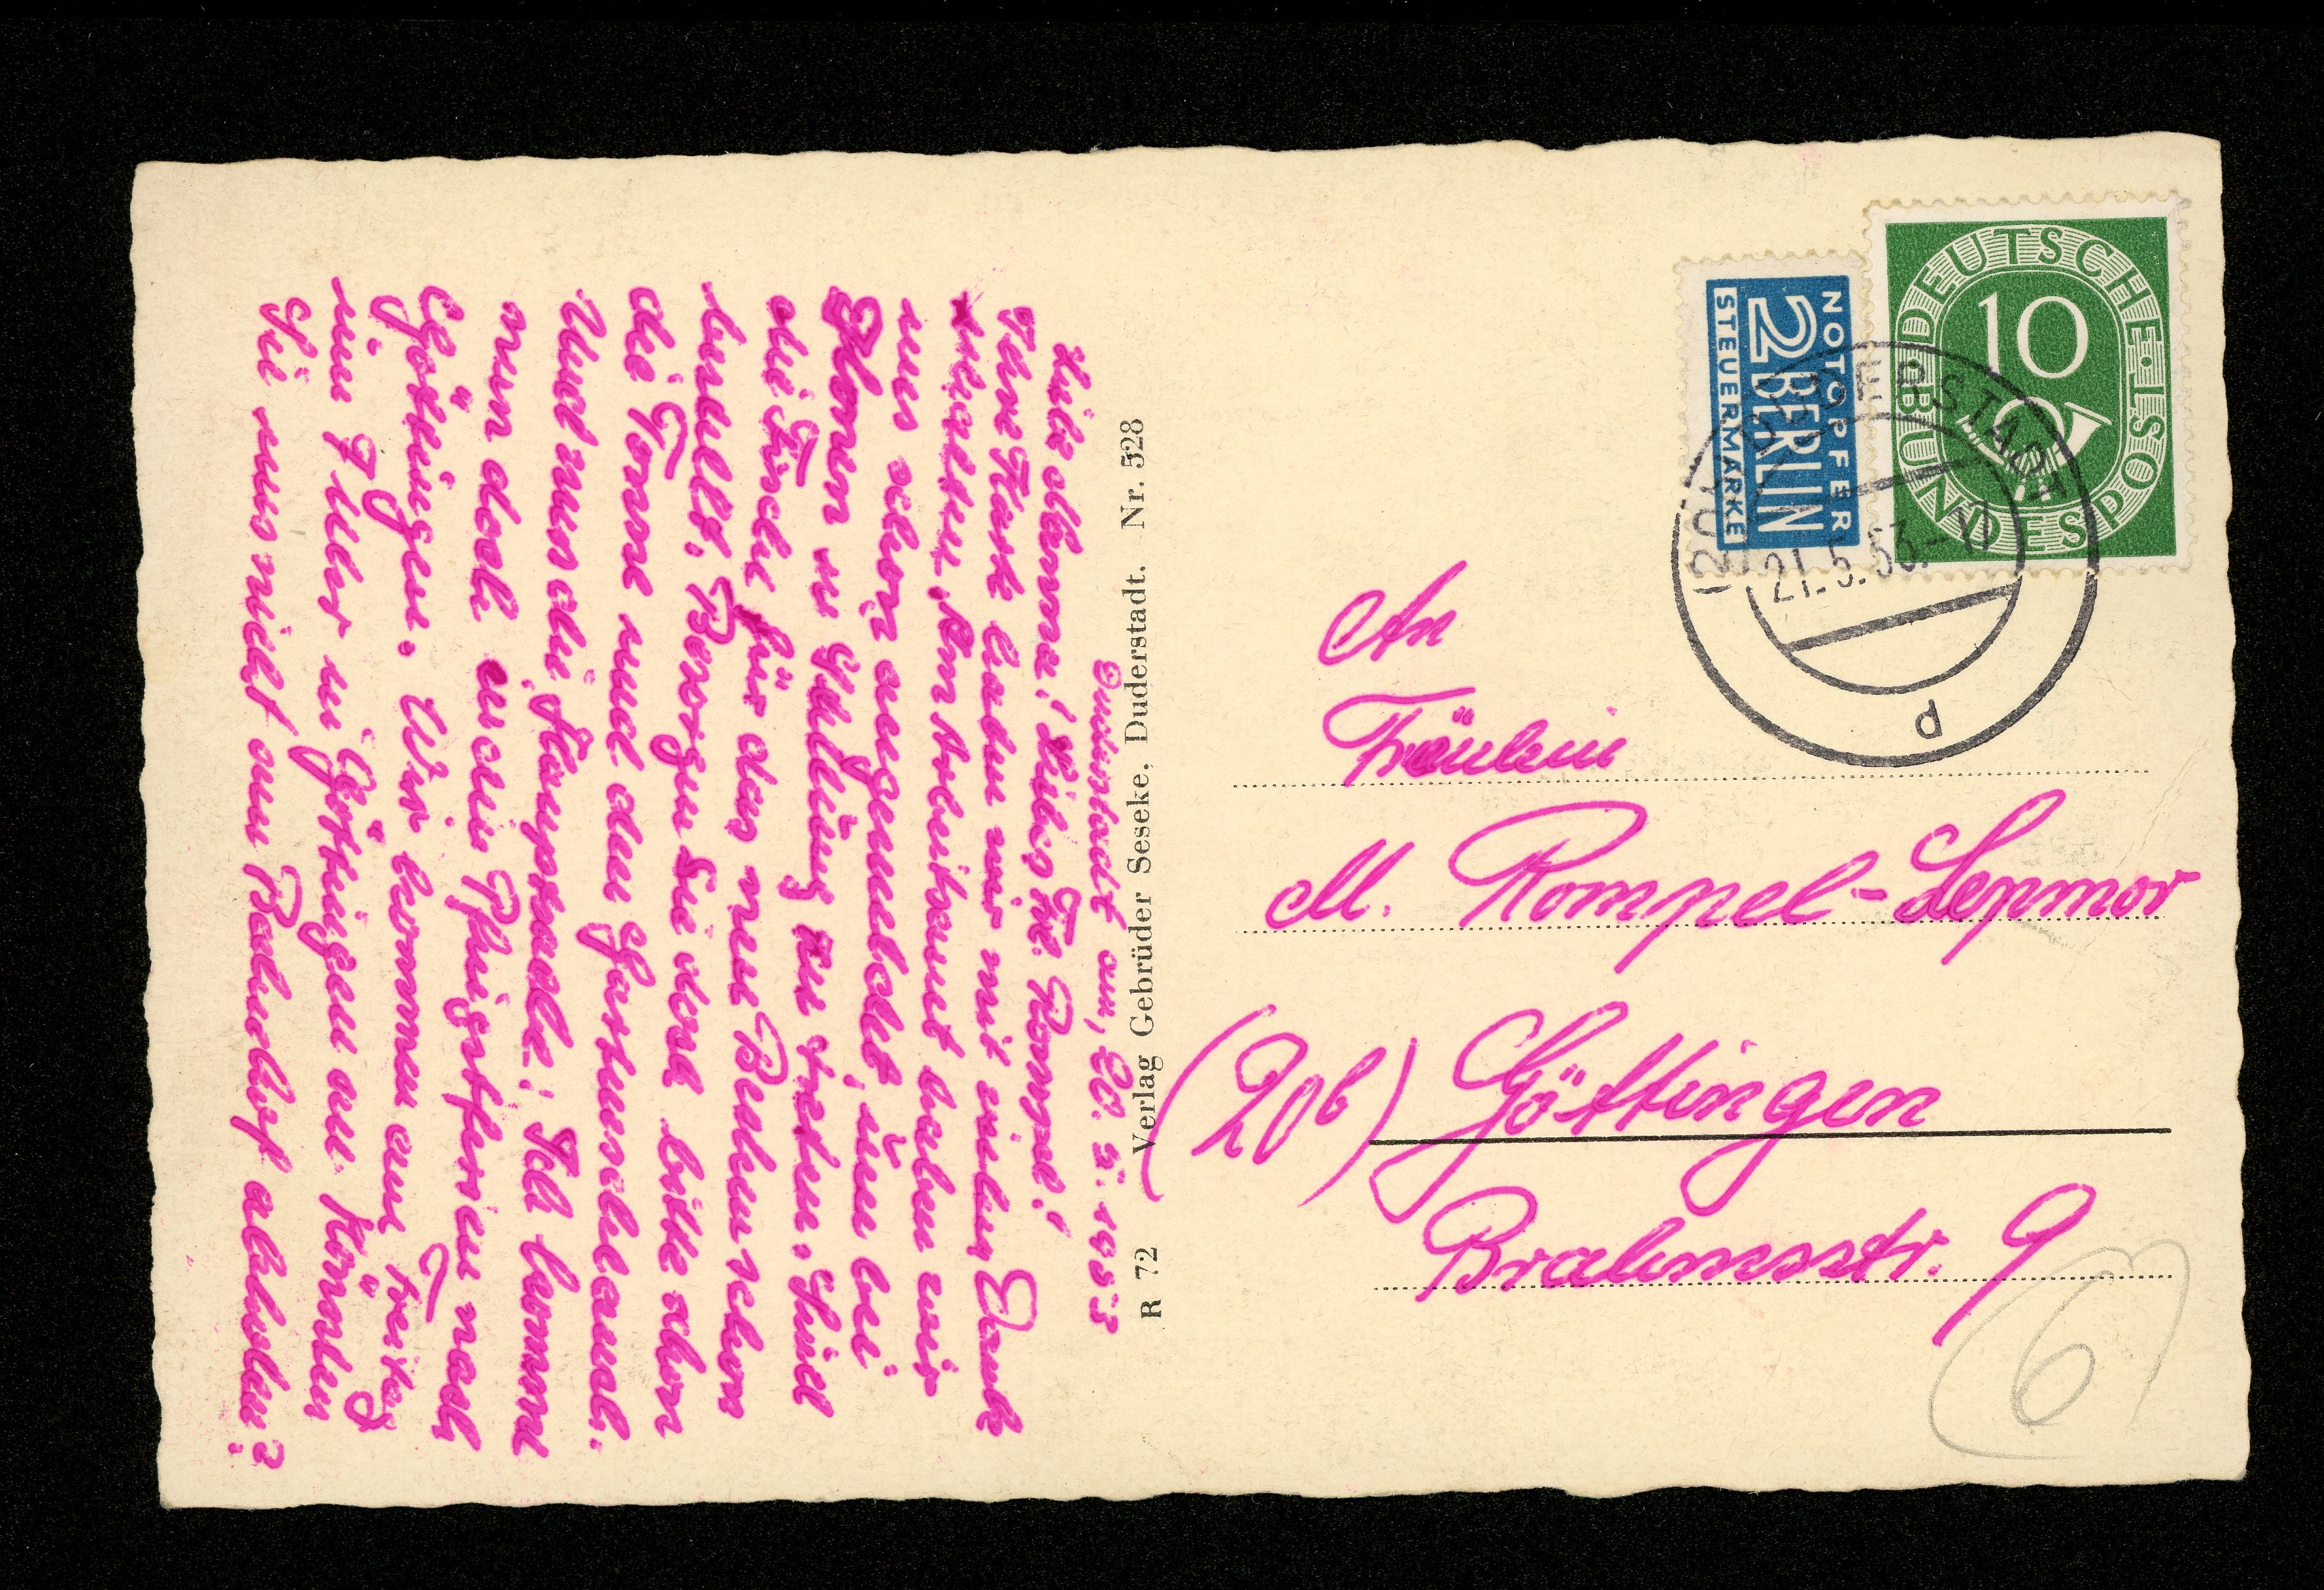 Duderstadt am, 20. 5. 1953
Liebe Hanna! Liebes Frl. Rompel!
Ihre Karte haben wir mit vielen Dank
erhalten. Am Arbeitsamt haben wir
uns schon angemeldet, um bei
Ihnen in Stellung zu treten. Sind
die Tische für das neue Heim schon
bestellt? Besorgen Sie doch bitte schon
die Töpfe und den Gartenschlauch.
Und nun die Hauptsache: Ich komme
nun doch in den Pfingstferien nach
Göttingen. Wir kommen am Freitag
um 7 Uhr in Göttingen an. Können
Sie uns nicht am Bahnhof abholen?
R 72 Verlag Gebrüder Seseke, Duderstadt. Nr. 528
NOTOPFER
2 BERLIN
STEUERMARKE
DEUTSCHE BUNDESPOST
10
(20b) DUDERSTADT
21.5.53.-17
d
An
Fräulein
M. Rompel-Lepmor
(20b) Göttingen
Brahmsstr. 9
6